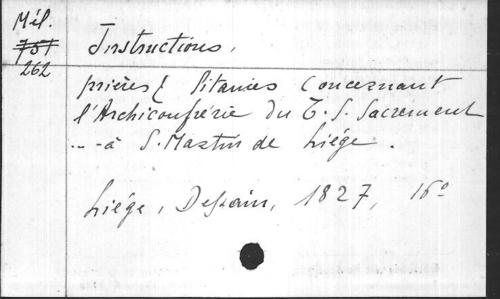 Mél.
751
262
Instructions,
prières & litanies concernant
l'Archiconfrérie du T. S. Sacrement
... à S. Martin de Liége.
Liége, Dessain, 1827, 16°